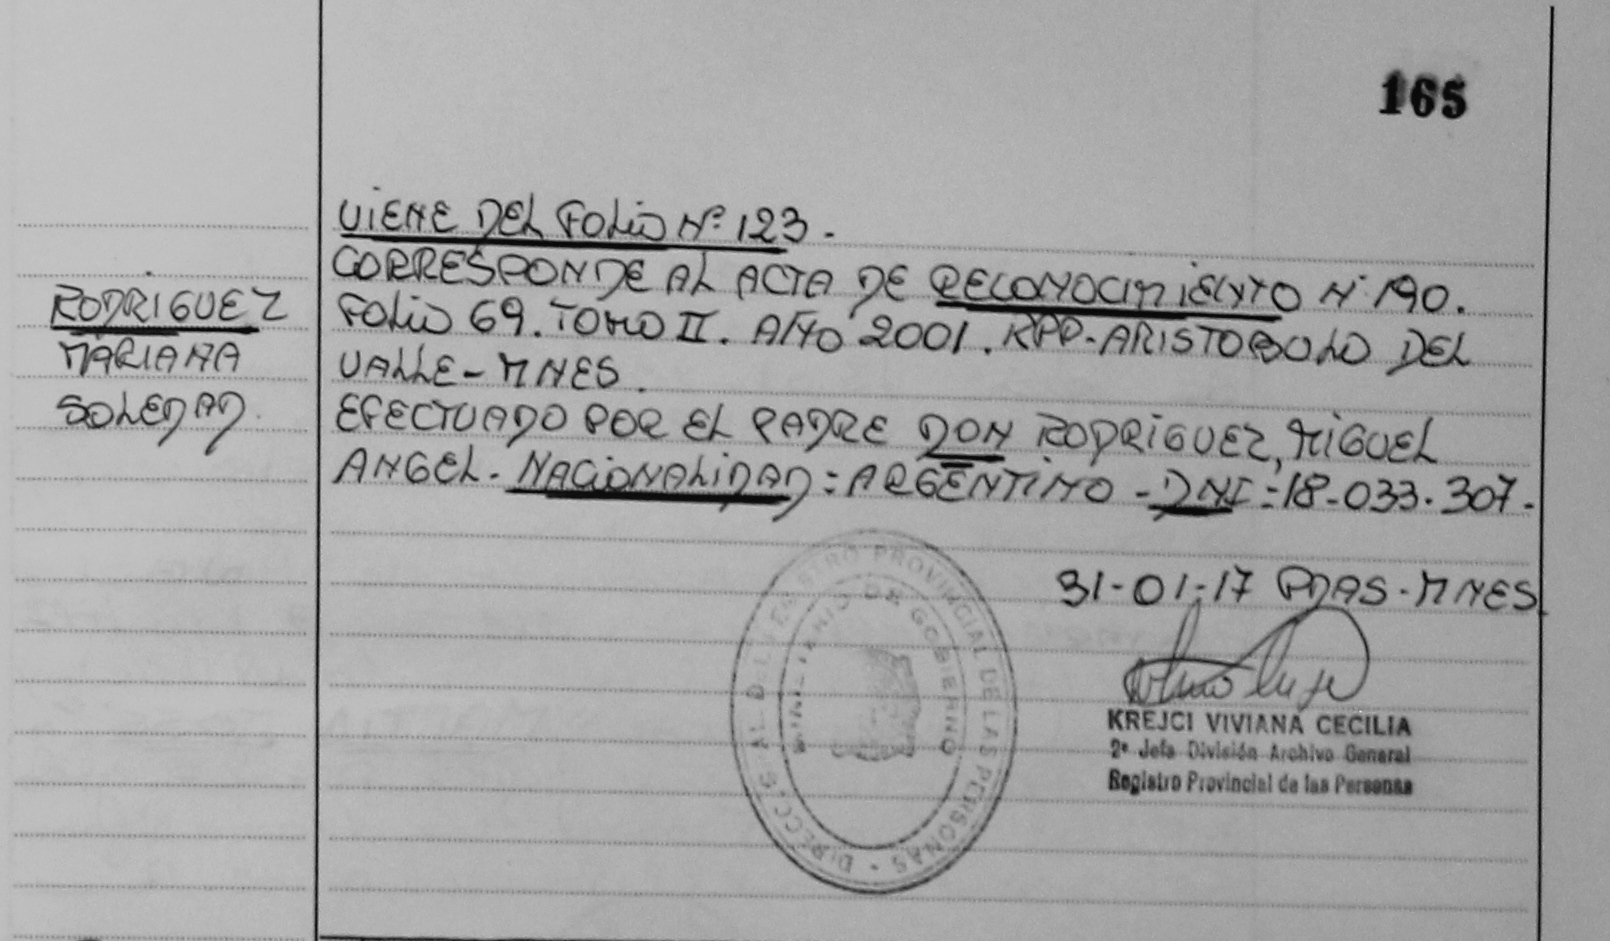 165
VIENE DEL FOLIO Nº 123.-
CORRESPONDE AL ACTA DE RECONOCIMIENTO Nº 190.
FOLIO 69. TOMO II. AÑO 2001. RPP-ARISTOBOLO DEL
VALLE-MNES.
EFECTUADO POR EL PADRE DON RODRIGUEZ, MIGUEL
ANGEL.-NACIONALIDAD=ARGENTINO-DNI=18-033.307.-
RODRIGUEZ
MARIANA
SOLEDAD.
31-01-17 PDAS-MNES.
KREJCI VIVIANA CECILIA
2ª Jefa División Archivo General
Registro Provincial de las Personas
PROVINCIAL DE LAS PERSONAS
MINISTERIO DE GOBIERNO